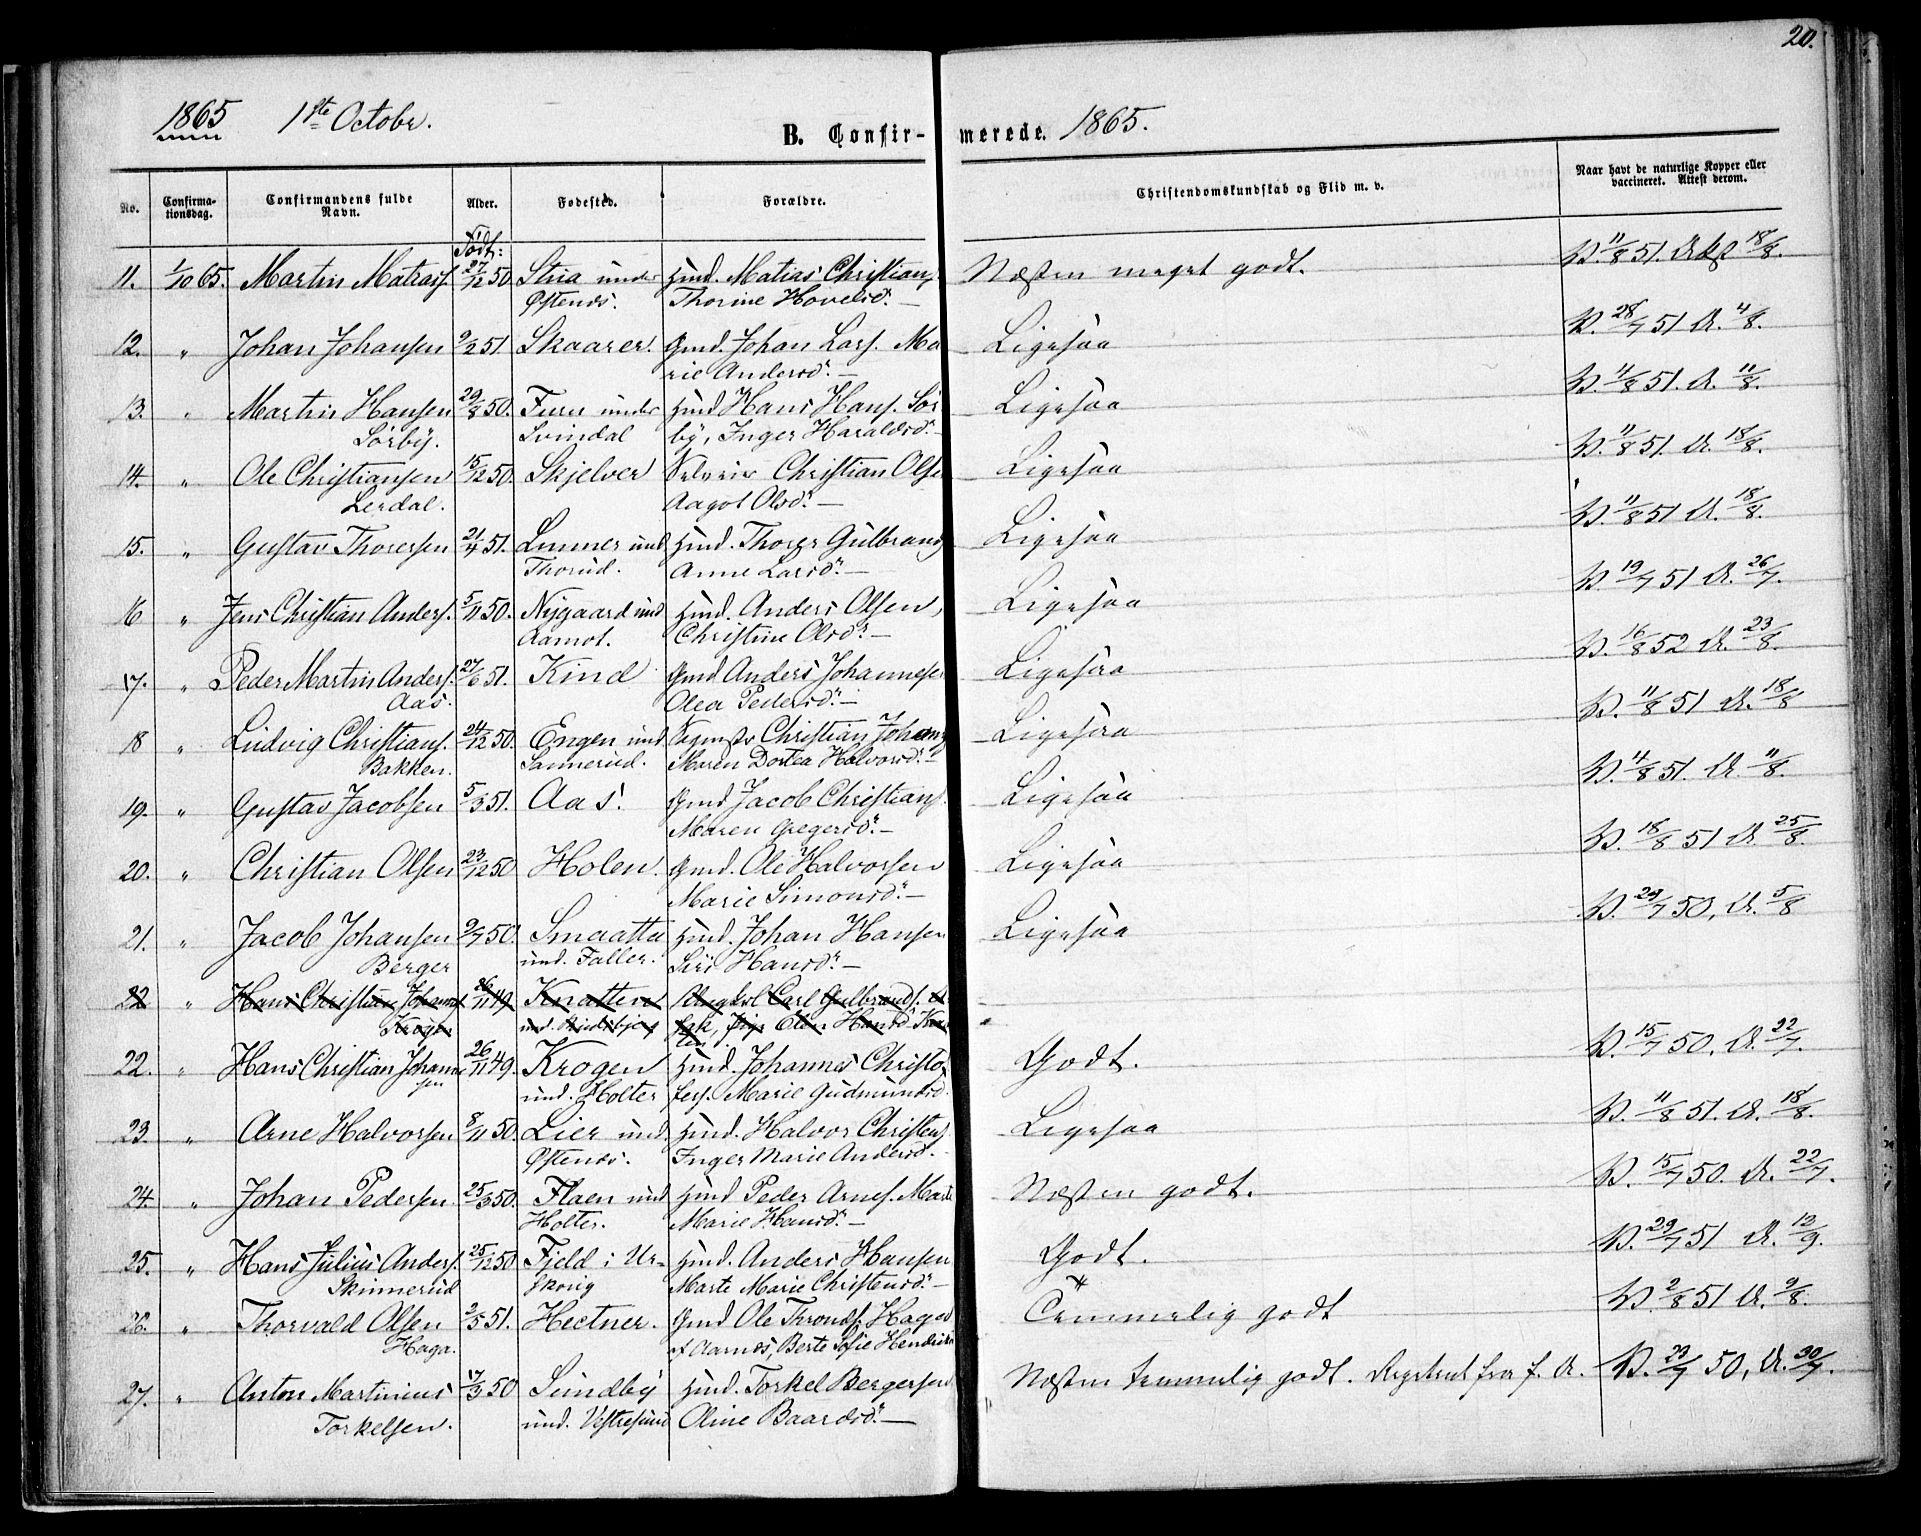 20.
1865 1ste Octobr.
B. Confir- merede. 1865.
No. Confirma-tionsdag. Confirmandens fulde Navn. Alder. Fødested. Forældre. Christendomskundskab og Flid m. v. Naar havt de naturlige Kopper eller vaccineret. Attest derom.
Født:
11. 1/10 65. Martin Matiass. 27/12 50 Stria under Hmd. Matias Christians, Næsten meget godt. V. 11/8 51. Attst 18/8.
Østends. Thorine Hovelsd. —
12. " Johan Johansen 9/2 51 Skaarer. Gmd. Johan Lars. Ma Ligesaa V. 28/7 51 A. 4/8.
rie Andersd. —
13. " Martin Hansen 29/8 50. Furu under Hmd Hans Hans. Sør Ligesaa V. 11/8 51. A. 11/8.
Sørby. Svindal by, Inger Haraldsd. —
14. " Ole Christiansen 15/12 50. Skjelver Selveier Christian Olsen Ligesaa V. 11/8 51. A. 18/8.
Lerdal. Aagot Olsd. —
15. " Gustav Thoresen 21/4 51. Lunner und Hmd. Thorer Gulbrands Ligesaa V. 11/8 51 A. 18/8.
Thorud. Anne Larsd. —
16 " Jens Christian Anders. 5/11 50. Nygaard und Hmd. Anders Olsen, Ligesaa V. 19/7 51 A. 26/7.
Aamot. Christine Olsd. —
17. " Peder Martin Anders. 27/6 51. Kind Gmd Anders Johannesen Ligesaa V. 16/8 52 A. 23/8.
Aas. Olea Pedersd. —
18 " Ludvig Christians. 24/12 50. Engen und Christian Johans Ligesaa V. 11/8 51 A. 18/8
Bakken. Sannerud. Maren Dortea Halvorsd. —
19. " Gustav Jacobsen 5/3 51. Aas. Gmd Jacob Christians. Ligesaa V. 4/8 51. A. 11/8.
Maren Gregersd. —
20. " Christian Olsen 23/12 50 Holen. Gmd. Ole Halvorsen Ligesaa V. 18/8 51 A. 25/8.
Marie Simonsd. —
21. " Jacob Johansen 9/7 50. Smaatta Hmd. Johan Hansen Ligesaa V. 29/7 50, A. 5/8
Berger und. Faller. Siri Hansd. —
22 " Hans Christian Johanns 26/11 49 Knatten Ungkl Carl Gulbrands.
Krogen und. Pige Elen Hansd.
22. " Hans Christian Johanne 26/11 49. Krogen Hmd. Johannes Christo Godt. V. 15/7 50. A. 22/7.
sen und. Holter fers. Marie Gudmundsd.
23. " Arne Halvorsen 8/11 50. Lier und Hmd. Halvor Christens. Ligesaa V. 11/8 51. A. 18/8.
Østends. Inger Marie Andersd. —
24. " Johan Pedersen 25/3 50. Flaen und Hmd Peder Arnes. Marte Næsten godt. V. 15/7 50. A. 22/7.
Holter. Marie Hansd. —
25. " Hans Julius Anders. 25/12 50 Fjeld i Ur- Hmd. Anders Hansen Godt. V. 29/7 51 A. 12/9.
Skinnerud skoug Marte Marie Christensd. —
26. " Thorvald Olsen 2/5 51. Hectner. Gmd Ole Thronds. Haga Temmelig godt V. 2/8 51 A. 9/8.
Haga. af Aarnæs, Berte Sofie Hendriks
27. " Anton Martinius 17/3 50 Sundby Hmd. Torkel Bergersen Næsten temmelig godt. fra f. A. V. 23/7 50, A. 30/7.
Torkelsen. und. Vestresund Oline Baardsd. —